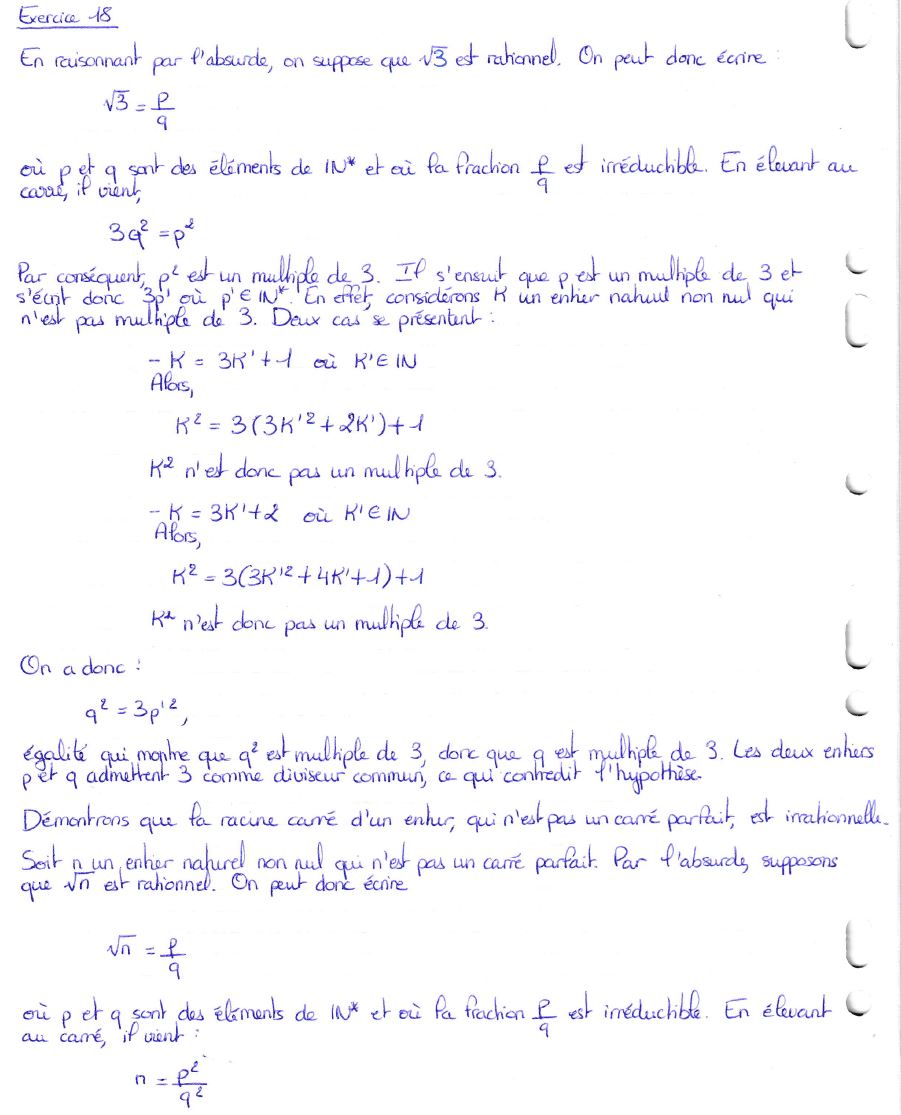 Exercice 18
En raisonnant par l'absurde, on suppose que √3 est rationnel. On peut donc écrire :
√3 = p/q
où p et q sont des éléments de IN* et où la fraction p/q est irréductible. En élevant au
carré, il vient,
3q² = p²
Par conséquent, p² est un multiple de 3. Il s'ensuit que p est un multiple de 3 et
s'écrit donc 3p' où p' ∈ IN*. En effet, considérons K un entier naturel non nul qui
n'est pas multiple de 3. Deux cas se présentent :
- K = 3K'+1 où K' ∈ IN
Alors,
K² = 3(3K'²+2K')+1
K² n'est donc pas un multiple de 3.
- K = 3K'+2 où K' ∈ IN
Alors,
K² = 3(3K'²+4K'+1)+1
K² n'est donc pas un multiple de 3.
On a donc :
q² = 3p'²,
égalité qui montre que q² est multiple de 3, donc que q est multiple de 3. Les deux entiers
p et q admettent 3 comme diviseur commun, ce qui contredit l'hypothèse.
Démontrons que la racine carré d'un entier, qui n'est pas un carré parfait, est irrationnelle.
Soit n un entier naturel non nul qui n'est pas un carré parfait. Par l'absurde, supposons
que √n est rationnel. On peut donc écrire
√n = p/q
où p et q sont des éléments de IN* et où la fraction p/q est irréductible. En élevant
au carré, il vient :
n = p²/q²